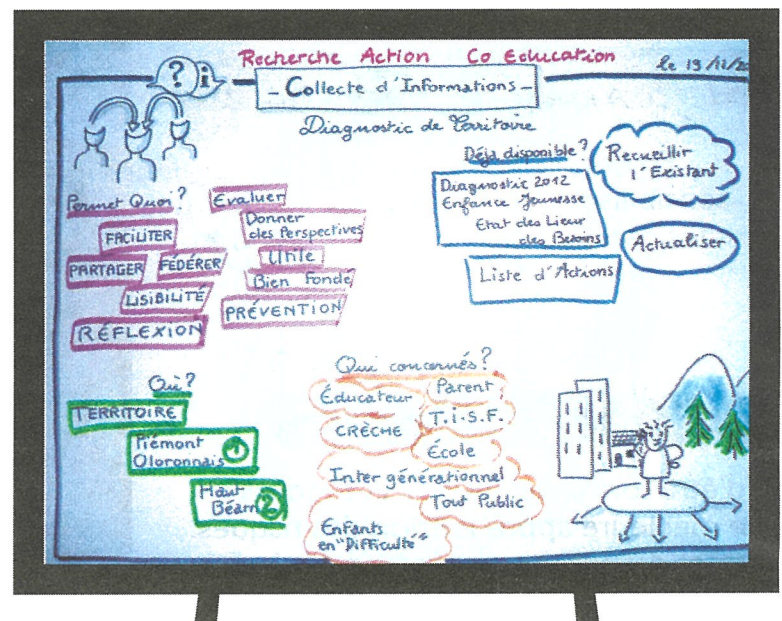 Recherche Action Co Education
le 19/11/20
? i
- Collecte d'Informations -
Diagnostic de Territoire
Permet Quoi?
FACILITER
PARTAGER
FÉDÉRER
LISIBILITÉ
RÉFLEXION
Evaluer
Donner
des Perspectives
Utile
Bien Fondé
PRÉVENTION
Déjà disponible?
Diagnostic 2012
Enfance Jeunesse
Etat des Lieux
des Besoins
Liste d'Actions
Recueillir
l'Existant
Actualiser
Où?
TERRITOIRE
Piémont
Oloronnais 1
Haut
Béarn 2
Qui concernés?
Éducateur
Parent
CRÈCHE
T.i.S.F.
École
Inter générationnel
Tout Public
Enfants
en "Difficulté"